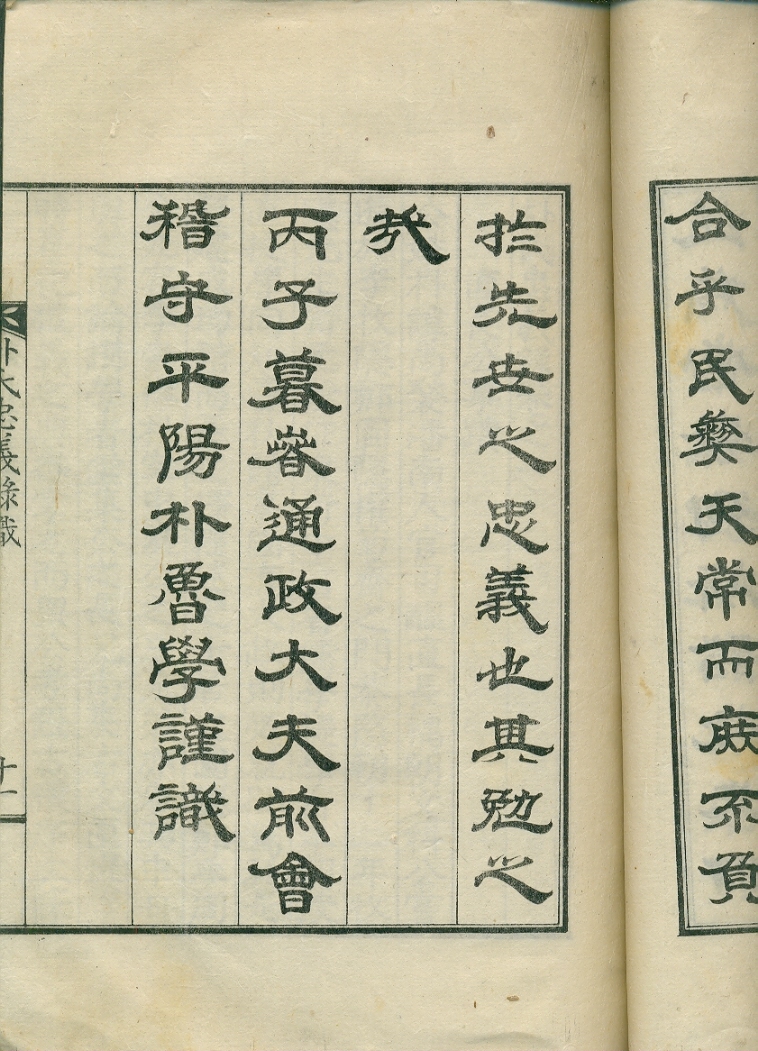 合乎民彝天常而庶不負
於先世之忠義也其勉之
哉
丙子暮春通政大夫前會
稽守平陽朴魯學謹識
朴氏忠義錄識
十一